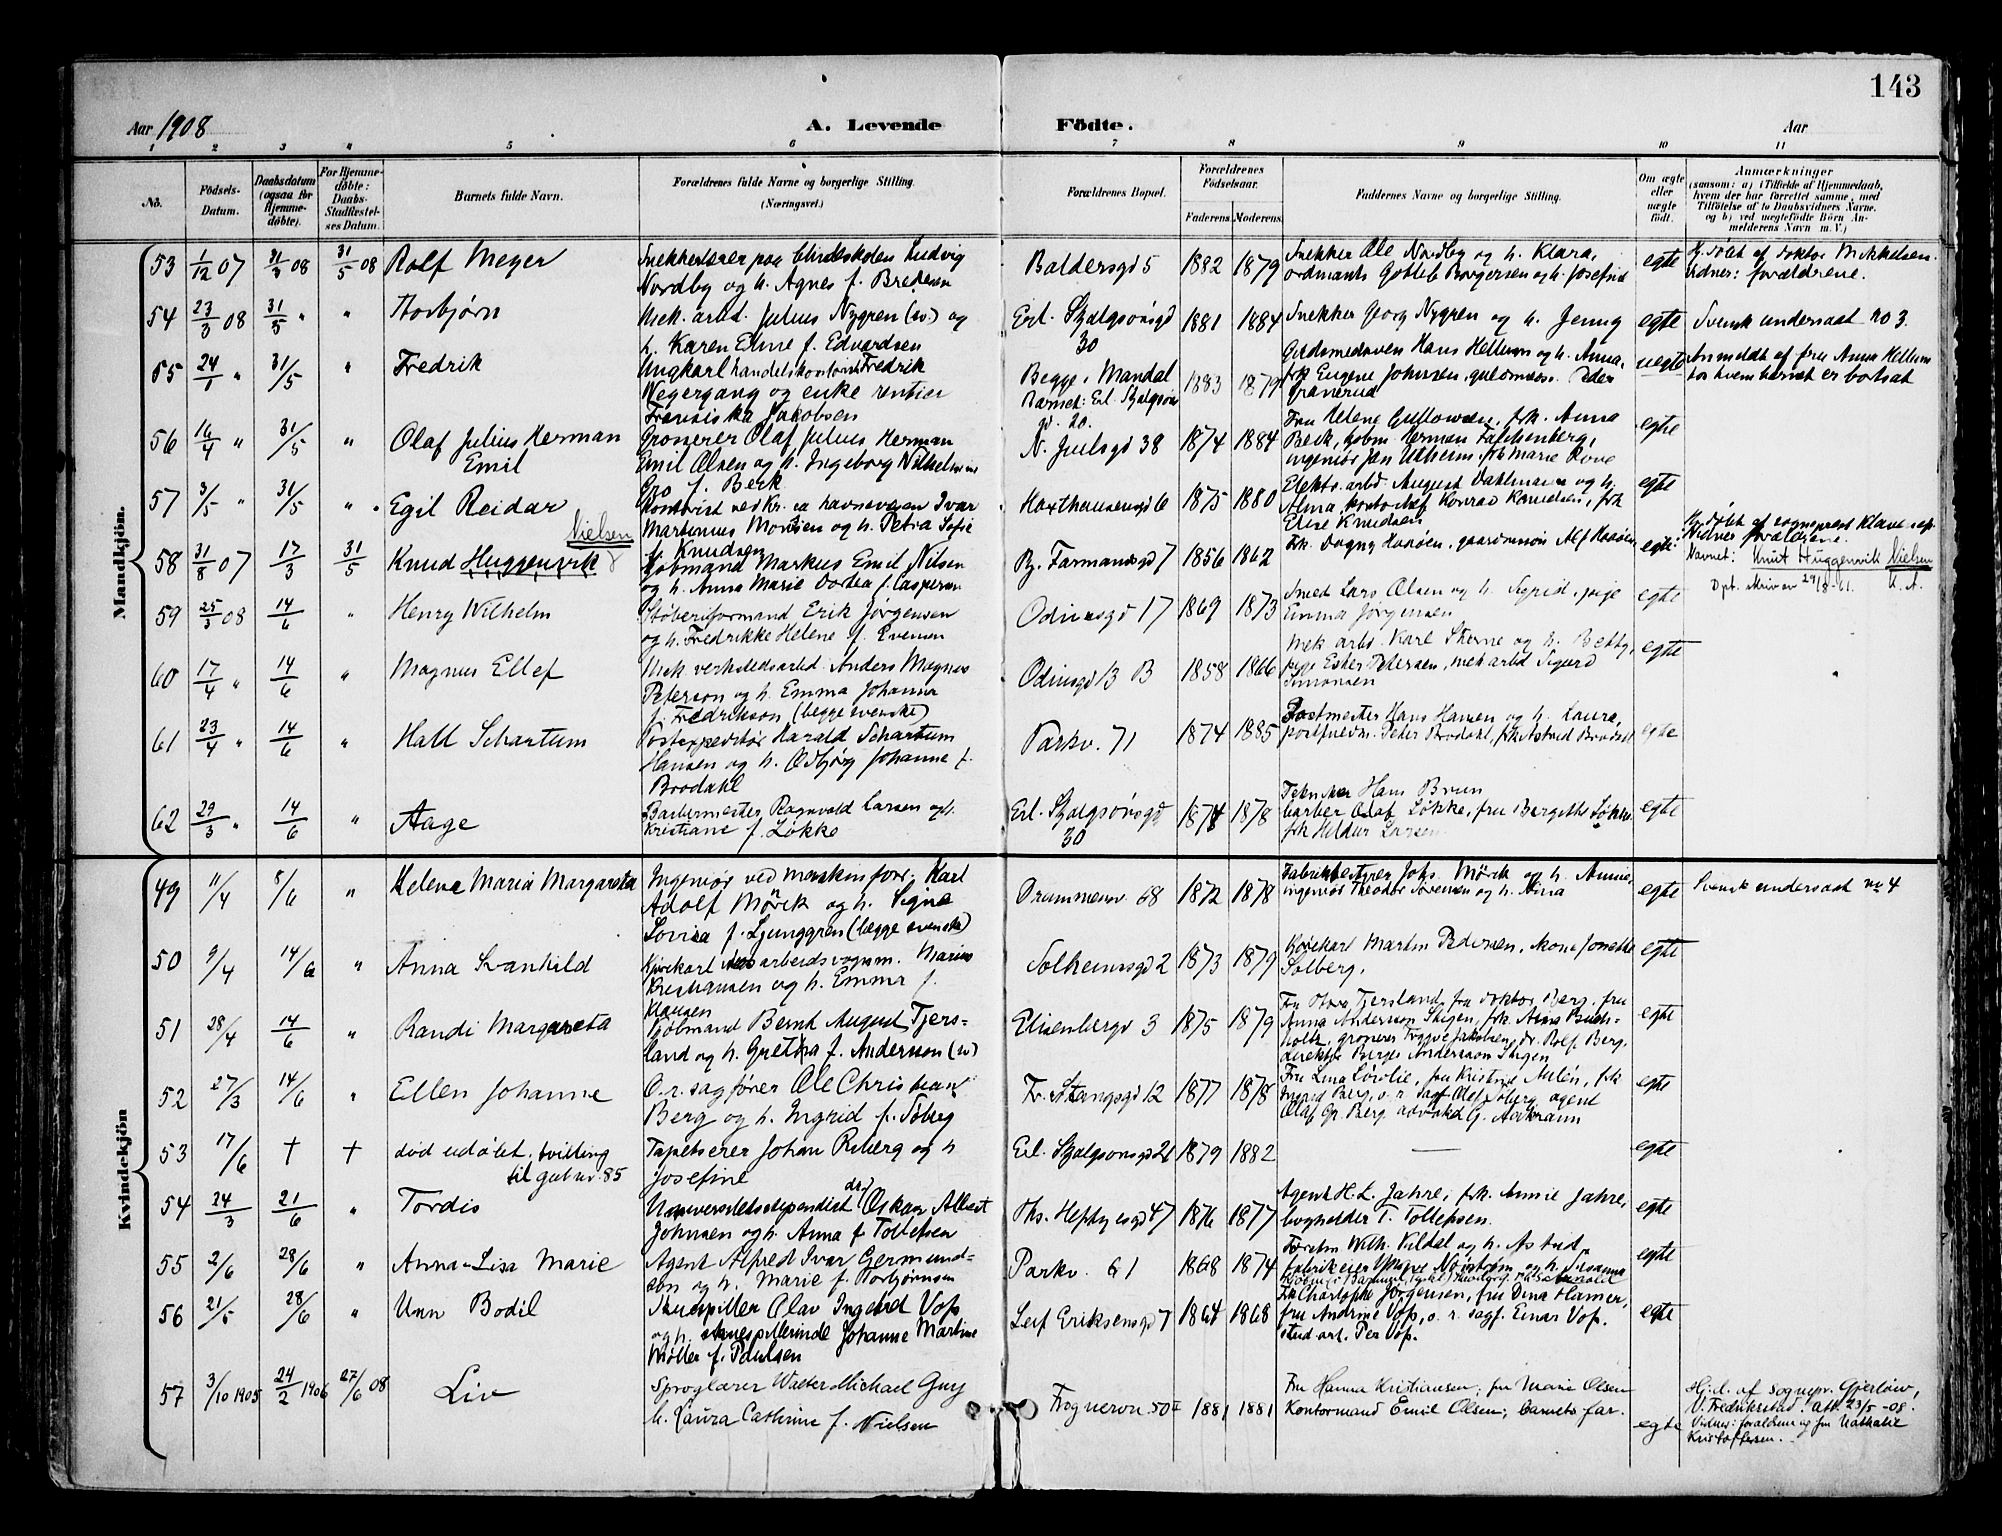 143
Aar 1908
A. Levende
Fødte.
Aar
1 2 3 4 5 6 7 8 9 10 11
No.
Fødsels-Datum.
Daabsdatum (ogsaa for Hjemmedøbte).
For Hjemmedøbte: Daabs-Stadfæstelses Datum.
Barnets fulde Navn.
Forældrenes fulde Navne og borgerlige Stilling. (Næringsvei.)
Forældrenes Bopæl.
Forældrenes Fødselsaar.
Faderens. Moderens.
Faddernes Navne og borgerlige Stilling.
Om ægte eller uægte født.
Anmærkninger
(saasom: a) i Tilfælde af Hjemmedaab, hvem der har forrettet samme, med Tilføielse af to Daabsvidners Navne. og b) ved uægtefødte Børn Anmelderens Navn m. V.)
Mandkjøn.
53 1/12 07 31/3 08 31/5 08 Rolf Meyer
Snekkerlærer paa blindeskolen Ludvig
Nordby og h. Agnes f. Bredesen
Baldersgd 5 1882 1879
Snekker Ole Nordby og h. Klara,
Gotleb Borgersen og h. Josefine
egte
Hj.døbt af doktor Mikkelsen.
Vidner: forældrene.
54 23/3 08 31/5 " " Thorbjørn
Mek. arbd. Julius Nygren (sv.) og
h. Karen Emme f. Edvardsen
Erl. Skjalgsønsgd 30 1881 1884
Snekker Georg Nygren og h. Jenny
egte
Svensk undersaat no 3.
55 24/1 " 31/5 " Fredrik
Ungkarl handelskontorist Fredrik
Wegergang og enke rentier
Fransiska Jakobsen
Begge: Mandal
Barnet: Erl. Skjalgsøns
gd. 20.
1883 1879
Gudsmedsven Hans Hellum og h. Anna,
frk Eugene Johnsen, guldmeds. Peder
Granerud
uegte
Anmeldt af fru Anna Hellum
hos hvem barnet er bortsat
56 16/4 " 31/5 " Olaf Julius Herman
Emil
Grosserer Olaf Julius Herman
Emil Olsen og h. Ingeborg Vilhelmine
Gro f. Beck
N. Juelsgd 38 1874 1884
Fru Helene Gulowsen, frk. Anna
Beck, kjøbm. Herman Falchenberg,
ingeniør Jan Udheim, frk Marie Rove
egte
57 3/5 " 31/5 " Egil Reidar
Kontorist ved Kr.ia havnevæsen Ivar
Martinius Monsen og h. Petra Sofie
f. Knudsen
Haxthausensgd 6 1875 1880
Elektr. arbd August Dahlmann og h.
Alma, kontorchef Konrad Knudsen, frk
Elise Knudsen
egte
58 31/8 07 17/3 31/5 Knud Huggenvik Nielsen
Kjøbmand Markus Emil Nilsen
og h. Anna Marie Dortea f. Caspersen
By. Farmandsgd 7 1856 1862
Frk. Dagny Haaøen, gaardmann Alf Haaøen
egte
Hj.døbt af sogneprest Klaveness
Vidner forældrene.
Navnet: Knut Huggenvik Nielsen
Dpt. skriv av 29/8-61. K. A.
59 25/3 08 14/6 " Henry Wilhelm
Støberiformand Erik Jørgensen
og h. Fredrikke Helene f. Evensen
Odinsgd 17 1869 1873
Smed Lars Olsen og h. Sigrid, pige
Emma Jørgensen
egte
60 17/4 " 14/6 " Magnus Ellef
Mek verkstedsarbd. Anders Magnus
Peterson og h. Emma Johanna
f. Fredrikson (begge svenske)
Odinsgd 13 B 1858 1866
Mek arbd. Karl Sterne og h. Betty,
pige Ester Petersen, mek arbd Sigurd
Simonsen
egte
61 23/4 " 14/6 " Hall Schartum
Postexpeditør Harald Schartum
Hansen og h. Odbjørg Johanne f.
Brodahl
Parkv. 71 1874 1885
Postmester Hans Hansen og h. Laura,
Peter Brodahl, frk Astrid Brodahl
egte
62 29/3 " 14/6 " Aage
Barbermester Ragnvald Larsen og h.
Kristiane f. Løkke
Erl. Skjalgsønsgd 30 1874 1878
Tekniker Hans Bruun
barber Olaf Løkke, fru Bergitte Løkke
frk Hildur Larsen
egte
Kvindekjøn
49 11/4 8/6 " Helene Maria Margareta
Ingeniør ved maskinforr. Karl
Adolf Mörck og h. Signe
Lovisa f. Ljunggren (begge svenske)
Drammensv. 68 1872 1878
Fabrikbestyrer Johs. Mörck og h. Annie,
ingeniør Theodor Sørensen og h. Aina
egte
Svensk undersaat no 4
50 9/4 14/6 " Anna Svanhild
Kjørekarl arbeidsvognm. Marius
Kristiansen og h. Emma f.
Klausen
Solheimsgd 2 1873 1879
Kjørekarl Martin Pedersen, Kone Jonette
Solberg,
egte
51 28/4 14/6 " Randi Margareta
Kjøbmand Bernt August Tjers-
land og h. Gretha f. Andersson (sv)
Elisenbergv 3 1875 1879
Fru Thora Tjersland, fru doktor Berg, fru
Anna Andersson Skigen, frk. Aina Buch-
holtz, grosserer Trygve Jakobsen, dr. Rolf Berg,
direktør Børge Andersson Skigen
egte
52 27/3 14/6 " Ellen Johanne
O. r. sagfører Ole Christian
Berg og h. Ingrid f. Søberg
Fr. Stangsgd 12 1877 1878
Fru Lina Lørdlie, fru Kristine Melén, frk
Ingrid Berg, o. r. sagf Olaf Søberg agent
Olaf Gr. Berg advokat G. Aakrann
egte
53 17/6 † † død udøbt, tvilling
til gut nr. 85
Tapetserer Johan Ryberg og h
Josefine
Erl. Skjalgsonsgd 21 1879 1882
—
egte
54 24/3 21/6 " Tordis
Universitetsstipendiat dr. Oskar Albert
Johnsen og h. Anna f. Tollefsen
Ths. Heftyesgd 47 1876 1877
Agent H. L. Jahre, frk. Annie Jahre,
bogholder T. Tollefsen.
egte
55 2/6 28/6 " Anna-Lisa Marie
Agent Alfred Ivar Germund-
son og h. Marie f. Torbjørnsen
Parkv. 61 1868 1874
Forretm Wilh. Kildal og h. Astrid,
fabrikeier Yngve Nystrøm og h. Susanna
egte
56 21/5 28/6 " Unn Bodil
Skuespiller Olav Ingebrd Voss
og h. skuespillerinde Johanne Martine
Møller f. Poulsen
Leif Eriksensgd 7 1864 1868
Frk Charlotte Jørgensen, fru Dina Hamer,
fru Andrine Voss, o. r. sagf. Einar Voss.
stud art. Per Voss.
egte
57 3/10 1905 24/2 1906 27/6 08 Liv
Sproglærer Walter Michael Guy
h. Laura Cathrine f. Nielsen
Frognervn 50 II 1881 1881
Fru Hanna Kristiansen; fru Marie Olsen
Kontormand Emil Olsen; Barnets far.
egte
Hj.d. af sognepr. Gjerløw,
V. Fredrikstad. Att. 23/5 -08.
Vidner: forældrene og fru Nathalie
Kristoffersen.